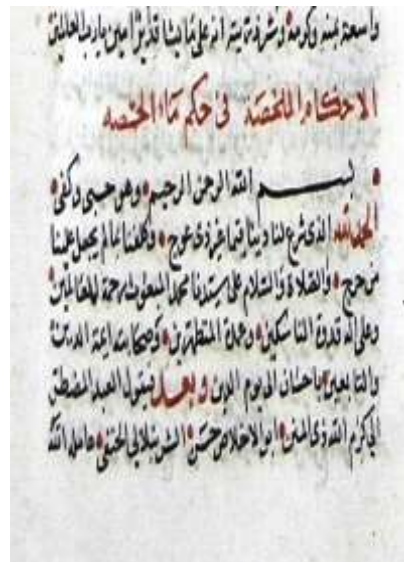 واسعة بمنه وكرمه وشرفه منه انه على ما يشا قدير امين يارب العالمين
الاحكام الملخصة في حكم ماء الحمصه
بسم الله الرحمن الرحيم وهو حسبي وكفى
الحمد لله الذي شرع لنا دينا قيما غير ذي عوج وكلفنا بما لم يجعل علينا
من حرج والصلاة والسلام على سيدنا محمد المبعوث رحمة للعالمين
وعلى اله قدوة الناسكين وعمدة المتطهرين وصحابته ايمة الدين
والتابعين باحسان الى يوم الدين وبعد فيقول العبد المضطر
الى كرم الله ذي المنن ابو الاخلاص حسن الشرنبلالي الحنفي عامله الله